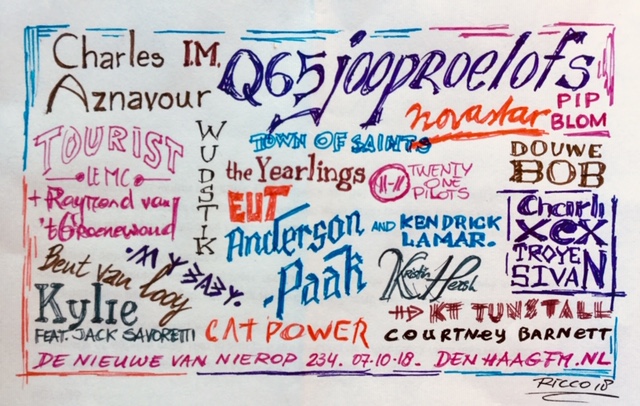 Charles I.M.
Aznavour
Q65 jooproelofs
novastar
PIP
BLOM
TOURIST
LEMC
WUDSTIK
TOWN OF SAINTS
DOUWE
BOB
the Yearlings
TWENTY
ONE
PILOTS
+ Raymond van
't Groenewoud
EUT
Anderson
.Paak
AND KENDRICK
LAMAR.
Charli
XCX
TROYE
SIVAN
Bent van Looy
.MY BABY.
Kristin Hersh
Kylie
FEAT. JACK SAVORETTI
CAT POWER
KT TUNSTALL
COURTNEY BARNETT
DE NIEUWE VAN NIEROP 234. 07-10-18. DENHAAGFM.NL
RICCO 18